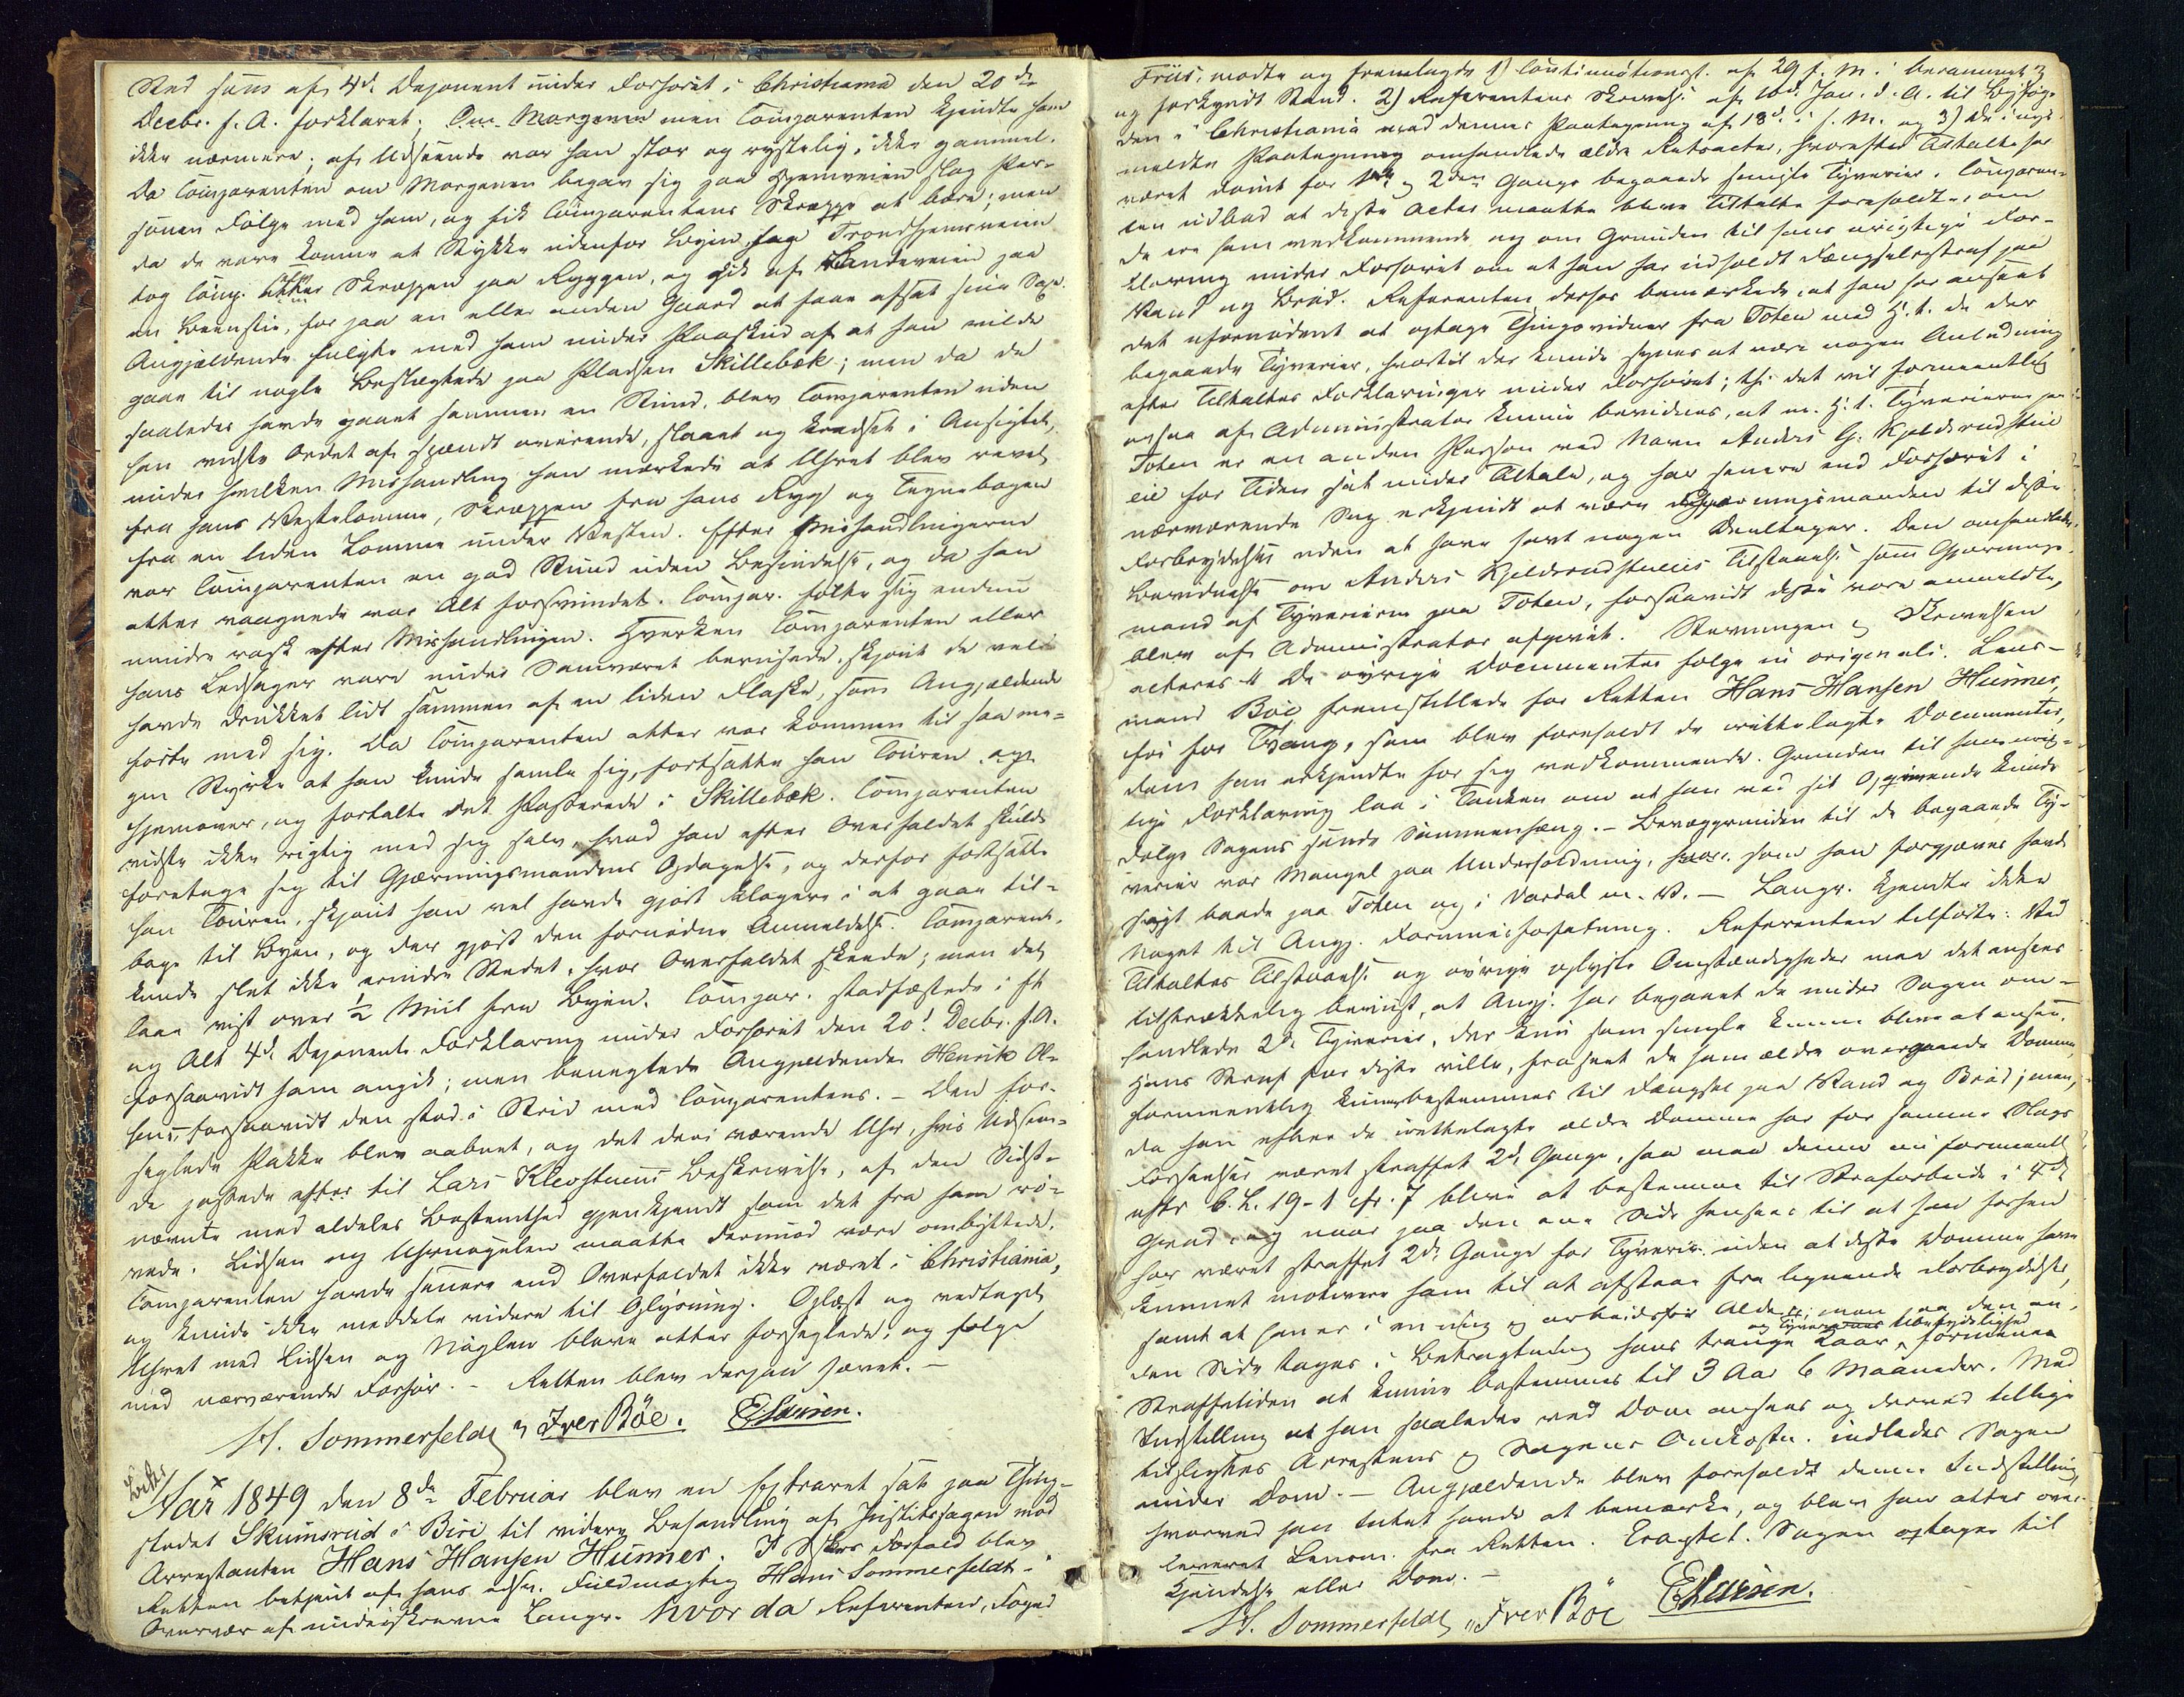 Sted som af 4de Deponent under Forhøret i Christiania den 20de
Decbr. f. A. forklaret; Om Morgenen men Comparenten kjendte ham
ikke nærmere; af Udseende var han stor og ikke gammel.
Da Comparenten om Morgenen begav sig paa Hjemveien slog Per-
sonen Følge med ham, og fik Comparentens Skræppe at bære; men
da de vare komne et Stykke udenfor Byen paa Trondhjemsveien
tog Comp. atter Skræppen paa Ryggen, og gik af Landeveien paa
en Beensti, for paa en eller anden Gaard at faae afsat sine
Angjældende fulgte med ham under Paaskud af at han vilde
gaae til nogle Beslægtede paa Pladsen Skillebæk; men da de
saaledes havde gaaet sammen en Stund, blev Comparenten uden
han vidste Ordet af spændt overende, slaaet og kradset i Ansigtet,
under hvilken Mishandling han mærkede at Uhret blev revet
fra hans Vestelomme, Skræppen fra hans Ryg og Tegnebogen
fra en liden Lomme under Vesten. Efter Mishandlingerne
var Comparenten en god Stund uden Besindelse, og da han
atter vaagnede var Alt forsvundet. Compar. følte sig endnu
mindre rask efter Mishandlingen. Hverken Comparenten eller
hans Ledsager vare under Samværet berusede, skjønt de vel
havde drukket lidt sammen af en liden Flaske, som Angjældende
førte med sig. Da Comparenten atter var kommen til saa me-
gen Styrke at han kunde samle sig, fortsatte han Touren
hjemover, og fortalte det Passerede i Skillebæk. Comparenten
vidste ikke rigtig med sig selv, hvad han efter Overfaldet skulde
foretage sig til Gjærningsmandens Opdagelse, og derfor fortsatte
han Touren, skjønt han vel havde gjort klogere i at gaae til-
bage til Byen, og der gjort den fornødne Anmeldelse. Comparent.
kunde slet ikke erindre Stedet, hvor Overfaldet skeede; men det
laae vist over ½ Miil fra Byen. Compar. stadfæstede i Et
og Alt 4de Deponents Forklaring under Forhøret den 20de Decbr. f. A.
forsaavidt ham angik; men benegtede Angjældende Henrik Ol-
sens, forsaavidt den stod i Strid med Comparentens. – Den for-
seglede Pakke blev aabnet, og det deri værende Uhr, hvis Udseen-
de passede efter til Lars Klevstuens Beskrivelse, af den Sidst-
nævnte med aldeles Bestemthed gjenkjendt som det fra ham rø-
vede. Lidsen og Uhrnøgelen maatte derimod være ombyttede.
Comparenten havde senere end Overfaldet ikke været i Christiania,
og kunde ikke meddele videre til Oplysning. Oplæst og vedtaget.
Uhret med Lidsen og Nøglen bleve atter forseglede, og følge
med nærværende Forhør. – Retten blev derpaa hævet. –
H. Sommerfeldt Iver Böe. E Larsen.
Aar 1849 den 8de Februar blev en Extraret sat paa Thing-
stedet Skumsrud i Biri til videre Behandling af Justitssagen mod
Arrestanten Hans Hansen Hunner. I Forfald blev
Retten betjent af hans Fuldmægtig Hans Sommerfeldt i
Overvær af underskrevne Laugr. hvor da Referenten, Foged
Friis, mødte og fremlagde 1) Continuationsst. af 29 f. M. berammet
og forkyndt Stand. 2) Referentens Skrivelse af 10de Jan. d. A. til Byfog-
den i Christiania med dennes Paategning af 13de i s. M. og 3) De i nys-
meldte Paategning omhandlede ældre Retsacter, hvorefter Tiltalte har
været dømt for 1ste og 2den Gange begaaede simple Tyverier. Comparen-
ten udbad at disse Acter maatte blive Tiltalte foreholdte, om
de ere ham vedkommende og om Grunden til hans urigtige For-
klaring under Forhøret om at han har udholdt Fængselsstraf paa
Vand og Brød. Referenten derhos bemærkede, at han har anseet
det ufornødent at optage Thingsvidner fra Toten med H. t. de der
begaaede Tyverier, hvortil der kunde synes at være nogen Anledning
efter Tiltaltes Forklaringer under Forhøret; thi det vil formeentlig
ogsaa af Administrator kunne bevidnes, at m. H. t. Tyverierne paa
Toten er en anden Person ved Navn Anders G. Kjeldsrudstuen
eie for Tiden sat under Tiltale, og har senere end Forhøret i
nærværende Sag erkjendt at være Gjærningsmanden til disse
Forbrydelser uden at have havt nogen Deeltager. Den omhandlede
Bevidnelse om Anders Kjeldsrudstuens Tilstaaelse som Gjærnings-
mand af Tyverierne paa Toten, forsaavidt disse vare anmeldte,
blev af Administrator afgivet. Stevningen og Skrivelsen
acteres De øvrige Documenter følge in originali. Lens-
mand Böe fremstillede for Retten Hans Hansen Hunner,
fri for Tvang, som blev foreholdt de irettelagte Documenter,
dem han erkjendte for sig vedkommende. Grunden til hans urig-
tige Forklaring laa i Tanken om at han ved sit Opgivende kunde
dølge Sagens sande Sammenhæng. – Bevæggrunden til de begaaede Ty-
verier var Mangel paa Underholdning, som han forgjæves havde
søgt baade paa Toten og i Vardal m. V. – Laugr. kjendte ikke
Noget til Angj. Formuesforfatning. Referenten tilførte: Ved
Tiltaltes Tilstaaelse og øvrige oplyste Omstændigheder maa det ansees
tilstrækkelig beviist, at Angj. har begaaet de under Sagen om-
handlede 2de Tyverier, der kun som simple kunne blive at ansee.
Hans Straf for disse ville, fraseet de ham ældre overgaaede Domme,
formeentlig kunne bestemmes til Fængsel paa Vand og Brød; men,
da han efter de irettelagte ældre Domme har for samme Slags
Forseelser været straffet 2de Gange, saa maa denne nu formeentl.
efter C. L. 19-1 cfr. 7 blive at bestemme til Strafarbeide i 4de
Grad, og naar paa den ene Side henseees til at han forhen
har været straffet 2de Gange for Tyverie uden at disse Domme have
kunnet motivere ham til at afstaae fra lignende Forbrydelser,
samt at han er i en ung og arbeidsfør Alder; men paa den an-
og Tyveriernes Ubetydelighed
den Side tages i Betragtning hans trange Kaar, formenes
Straffetiden at kunne bestemmes til 3 Aar 6 Maaneder. Med
Indstilling at han saaledes ved Dom ansees og derved tillige
tilpligtes Arrestens og Sagens Omkostn. indlades Sagen
under Dom. – Angjældende blev foreholdt denne Indstilling
hvorved han Intet havde at bemærke, og blev han atter over-
leveret Lensm. fra Retten. Eragtet. Sagen optages til
Kjendelse eller Dom. –
H. Sommerfeldt Iver Böe E Larsen.